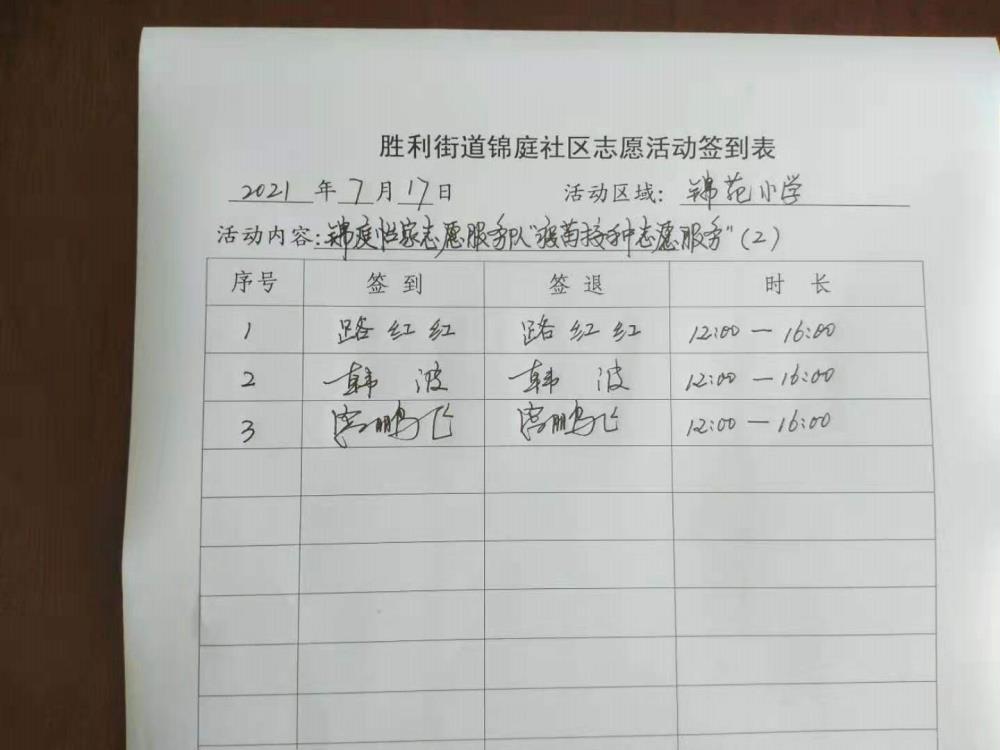 胜利街道锦庭社区志愿活动签到表
2021 年 7 月 17 日 活动区域: 锦苑小学
活动内容: 锦庭怡家志愿服务队“疫苗接种志愿服务”(2)
序号 签 到 签 退 时 长
1 路红红 路红红 12:00 — 16:00
2 韩 波 韩 波 12:00 — 16:00
3 鹏飞 鹏飞 12:00 — 16:00